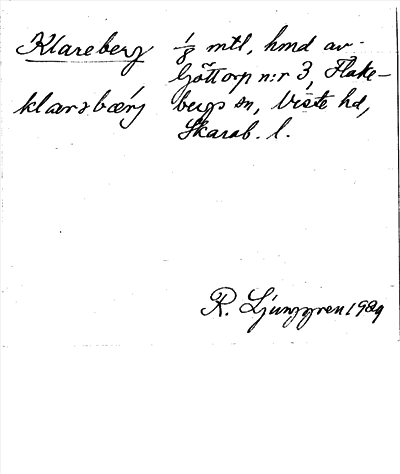 Klareberg 1/8 mtl, hmd av
Göttorp n:r 3, Flake-
klarsbærj bergs sn, Viste hd,
Skarab. l.
R. Ljunggren 1929